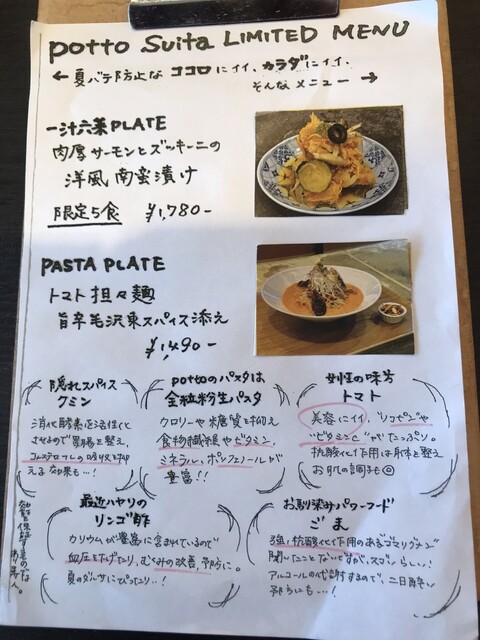 potto Suita LIMITED MENU
← 夏バテ防止な ココロにイイ、カラダにイイ、
そんなメニュー →
一汁六菜PLATE
肉厚サーモンとズッキーニの
洋風南蛮漬け
限定5食 ¥1,780-
PASTA PLATE
トマト担々麺
旨辛毛沢東スパイス添え
¥1,490-
隠れスパイス
クミン
消化酵素を活性化
させるので胃腸を整え、
コレステロールの吸収を抑
える効果も…!
pottoのパスタは
全粒粉生パスタ
カロリーや糖質を抑え
食物繊維やビタミン、
ミネラル、ポリフェノールが
豊富!!
女性の味方
トマト
美容にイイ、"リコピン"や
"ビタミンC"がたっぷり。
抗酸化作用は体を整え
お肌の調子も◎
最近ハヤりの
リンゴ酢
カリウムが豊富に含まれているので
血圧を下げたり、むくみの改善、予防に。
夏のダルサにぴったり…!
お馴染みパワーフード
ごま
強い抗酸化作用のあるゴマリグナン
聞いたことないですが、スゴイらしい!
アルコールの代謝するので、二日酔い
予防にも…!